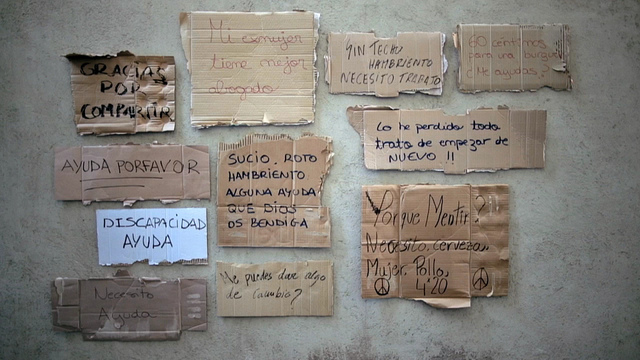 GRACIAS
POR
COMPARTIR
Mi exmujer
tiene mejor
abogado
SIN TECHO
HAMBRIENTO
NECESITO TRABAJO
60 céntimos
para una burguer
¿Me ayudas?
AYUDA PORFAVOR
SUCIO, ROTO
HAMBRIENTO
ALGUNA AYUDA
QUE DIOS
OS BENDIGA
Lo he perdido todo
trato de empezar de
NUEVO !!
DISCAPACIDAD
AYUDA
¿Porque Mentir?
Necesito, cerveza,
Mujer, Pollo,
4'20
Necesito
Ayuda
Me puedes dar algo
de Cambio?